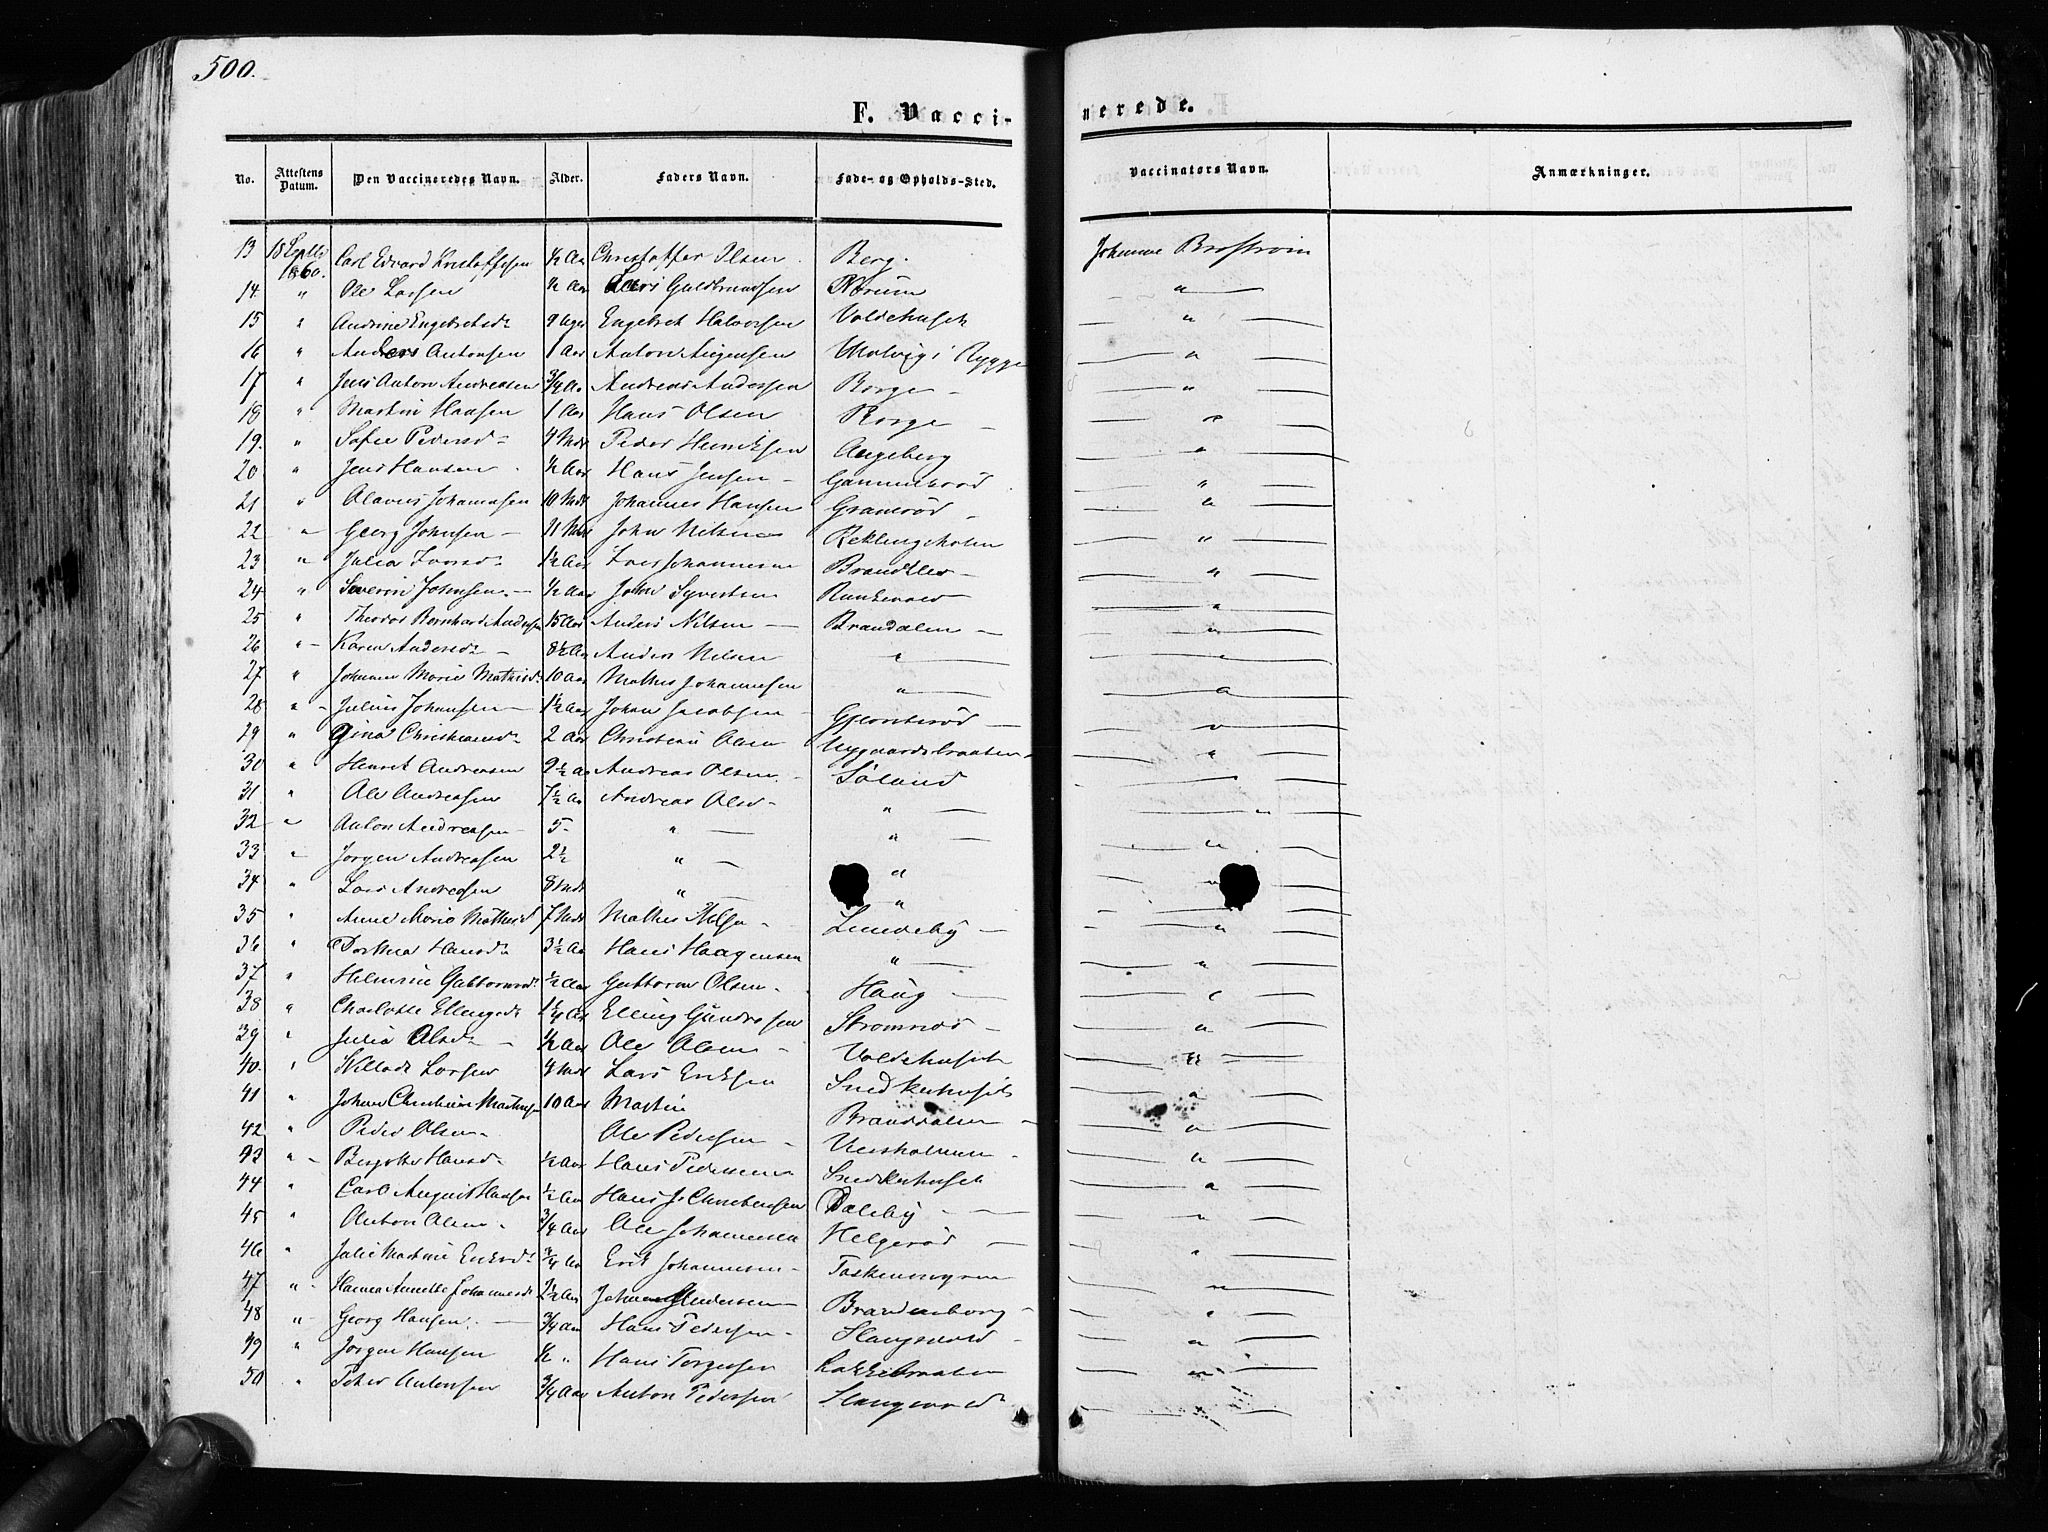 500.
F. Vacci-
nerede.
No. Attestens Datum. Den Vaccineredes Navn. Alder. Faders Navn. Føde- og Opholds-Sted. Vaccinators Navn. Anmærkninger.
13 18 Septbr 1860. Carl Edvard Kristoffersen ½ Aar Christoffer Olsen Berg. Johanne Brostrøm
14 " Ole Larsen ½ Aar Lars Guldbrandsen Norum "
15 " Andrine Engebretsd 9 Uger Engebret Halvorsen Voldehuset "
16 " Anders Antonsen 1 Aar Anton Rygge "
17 " Jens Anton Andreasen ¾ Aar Andreas Andersen Borge "
18 " Martin Hansen 1 Aar Hans Olsen Borge "
19. " Sofie Pedersd 4 Mdr Peder Henriksen Augeberg "
20 " Jens Hansen ½ Aar Hans Jensen "
21 " Olavus Johannesen 10 Mdr Johannes Hansen Granerød "
22 " Georg Johnsen 11 Mdr John Nilsen Reklingsholm "
23 " Julia Iversd 1½ Aar Iver Johannesen Brandklev "
24 " Severin Johnsen ½ Aar John Syvertsen "
25 " Theodor Bernhard Andersen 15 Aar Anders Nilsen Brandalen "
26 " Karen Andersd 8½ Aar Anders Nilsen " "
27 " Johanne Marie Mathisd 10 Aar Mathis Johannesen " "
28 " Julius Johansen 1½ Aar Johan Jacobsen "
29 " Gina Christiansd 2 Aar Christian Olsen Nygaardsbraaten "
30 " Henrik Andreasen 9½ Aar Andreas Olsen Søland
31 " Ole Andreasen 7½ Aar Andreas Ols " "
32 " Anton Andreasen 5 " "
33 " Jørgen Andreasen 2½ " " "
34 " Lars Andreasen 8 Mdr " " "
35 " Anne Marie Mathisd 7 Mdr Mathis Lundeby "
36 " Hansd 3½ Aar Hans Haagensen " "
37 " Helmine Guttormsd ½ Aar Guttorm Olsen Haug "
38 " Charlotte Ellingsd 1¼ Aar Elling Gundersen Strømnes "
39 " Julia Olsd ½ Aar Ole Olsen Voldehuset "
40. " Larsen 4 Mdr Lars Eriksen Snedkerhuset "
41 " Johan Christian 10 Aar Martin Branddalen "
42 " Peder Olsen Ole Pedersen "
43 " Hansd ½ Aar Hans Pedersen Snedkerhuset "
44 " Carl August Hansen ½ Aar Hans J. Christensen Daleby "
45 " Anton Olsen ¾ Aar Ole Johannesen Helgerød "
46 " Julie Martine Eriksd ¾ Aar Erik Johannesen Taskenmyren "
47 " Hanna Annette Johannesd 2½ Aar Johannes Andersen Brandenborg "
48 " Georg Hansen ¾ Aar Hans Pedersen Slangsvold "
49 " Jørgen Hansen ½ " Hans Torgersen Lakkebraaten "
50 " Peter Antonsen ¾ Aar Anton Pedersen Slangsvold